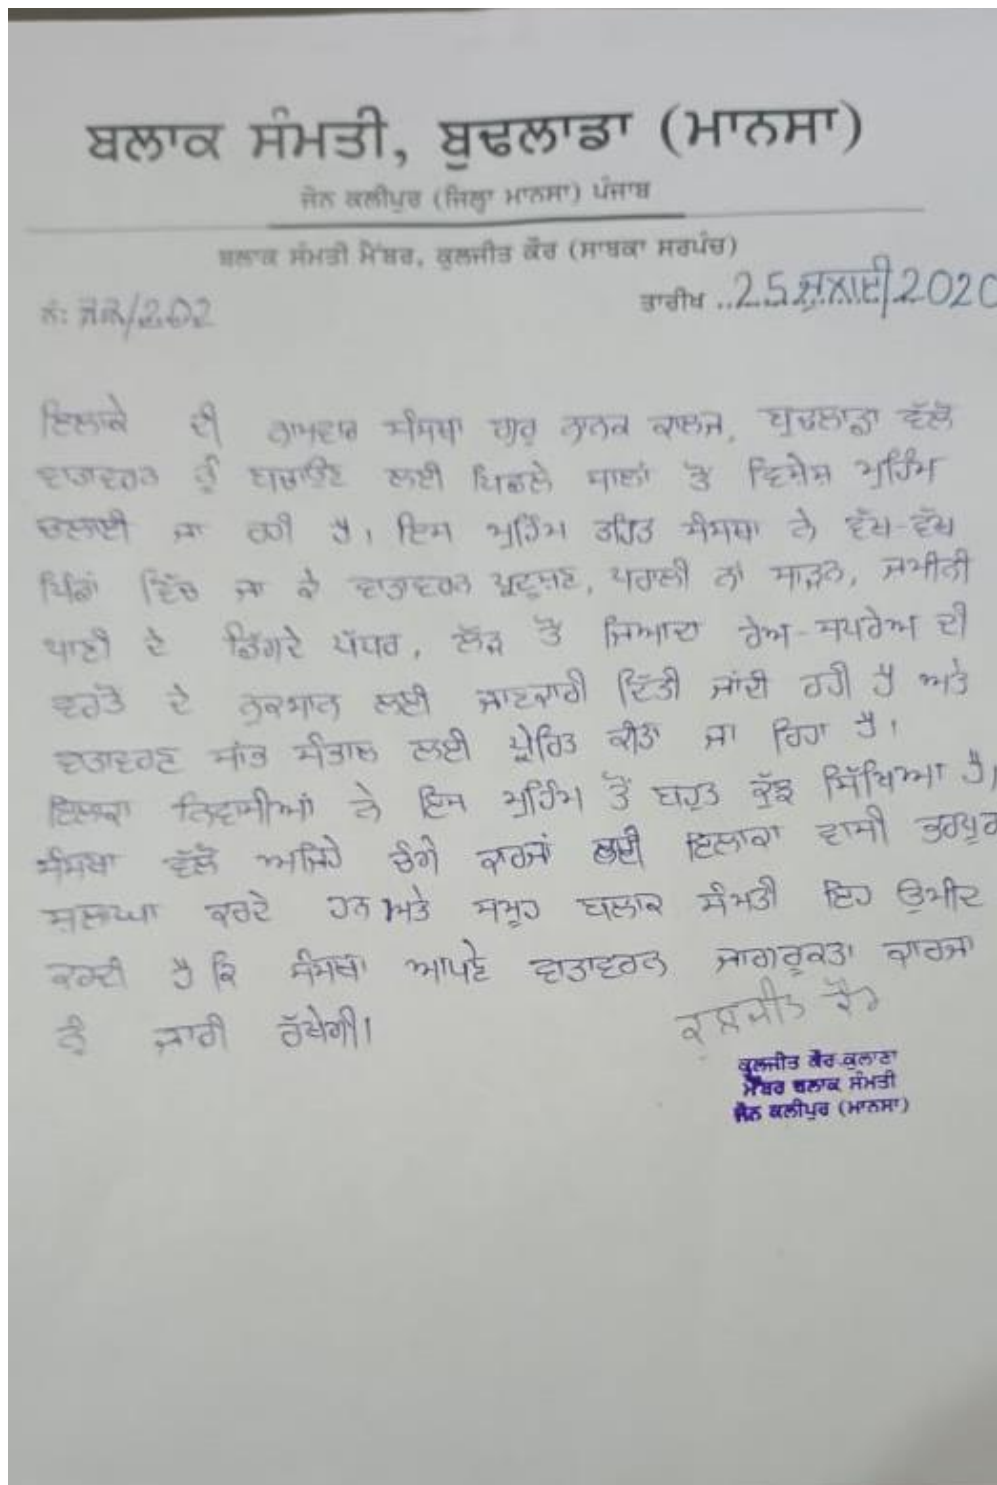 ਬਲਾਕ ਸੰਮਤੀ, ਬੁਢਲਾਡਾ (ਮਾਨਸਾ)
ਜੋਨ ਕਲੀਪੁਰ (ਜਿਲ੍ਹਾ ਮਾਨਸਾ) ਪੰਜਾਬ
ਬਲਾਕ ਸੰਮਤੀ ਮੈਂਬਰ, ਕੁਲਜੀਤ ਕੌਰ (ਸਾਬਕਾ ਸਰਪੰਚ)
ਨੰ: /202
ਤਾਰੀਖ ..25 ਜੁਲਾਈ 2020
ਇਲਾਕੇ ਦੀ ਨਾਮਵਾਰ ਸੰਸਥਾ ਗੁਰੂ ਨਾਨਕ ਕਾਲਜ, ਬੁਢਲਾਡਾ ਵੱਲੋਂ
ਵਾਤਾਵਰਨ ਨੂੰ ਬਚਾਉਣ ਲਈ ਪਿਛਲੇ ਸਾਲਾਂ ਤੋਂ ਵਿਸ਼ੇਸ਼ ਮੁਹਿੰਮ
ਚਲਾਈ ਜਾ ਰਹੀ ਹੈ। ਇਸ ਮੁਹਿੰਮ ਤਹਿਤ ਸੰਸਥਾ ਨੇ ਵੱਖ-ਵੱਖ
ਪਿੰਡਾਂ ਵਿੱਚ ਜਾ ਕੇ ਵਾਤਾਵਰਨ ਪ੍ਰਦੂਸ਼ਣ, ਪਰਾਲੀ ਨਾਂ ਸਾੜਨ, ਜਮੀਨੀ
ਪਾਣੀ ਦੇ ਡਿੱਗਦੇ ਪੱਧਰ, ਲੋੜ ਤੋਂ ਜਿਆਦਾ ਰੇਅ-ਸਪਰੇਅ ਦੀ
ਵਰਤੋਂ ਦੇ ਨੁਕਸਾਨ ਲਈ ਜਾਣਕਾਰੀ ਦਿੱਤੀ ਜਾਂਦੀ ਰਹੀ ਹੈ ਅਤੇ
ਵਾਤਾਵਰਣ ਸਾਂਭ ਸੰਭਾਲ ਲਈ ਪ੍ਰੇਰਿਤ ਕੀਤਾ ਜਾ ਰਿਹਾ ਹੈ।
ਇਲਾਕਾ ਨਿਵਾਸੀਆਂ ਨੇ ਇਸ ਮੁਹਿੰਮ ਤੋਂ ਬਹੁਤ ਕੁੱਝ ਸਿੱਖਿਆ ਹੈ।
ਸੰਸਥਾ ਵੱਲੋਂ ਅਜਿਹੇ ਚੰਗੇ ਕਾਰਜਾਂ ਲਈ ਇਲਾਕਾ ਵਾਸੀ ਭਰਪੂਰ
ਸ਼ਲਾਘਾ ਕਰਦੇ ਹਨ ਅਤੇ ਸਮੂਹ ਬਲਾਕ ਸੰਮਤੀ ਇਹ ਉਮੀਦ
ਕਰਦੀ ਹੈ ਕਿ ਸੰਸਥਾ ਆਪਣੇ ਵਾਤਾਵਰਨ ਜਾਗਰੂਕਤਾ ਕਾਰਜਾ
ਨੂੰ ਜਾਰੀ ਰੱਖੇਗੀ।
ਕੁਲਜੀਤ ਕੌਰ
ਕੁਲਜੀਤ ਕੌਰ ਕੁਲਾਣਾ
ਮੈਂਬਰ ਬਲਾਕ ਸੰਮਤੀ
ਜੋਨ ਕਲੀਪੁਰ (ਮਾਨਸਾ)